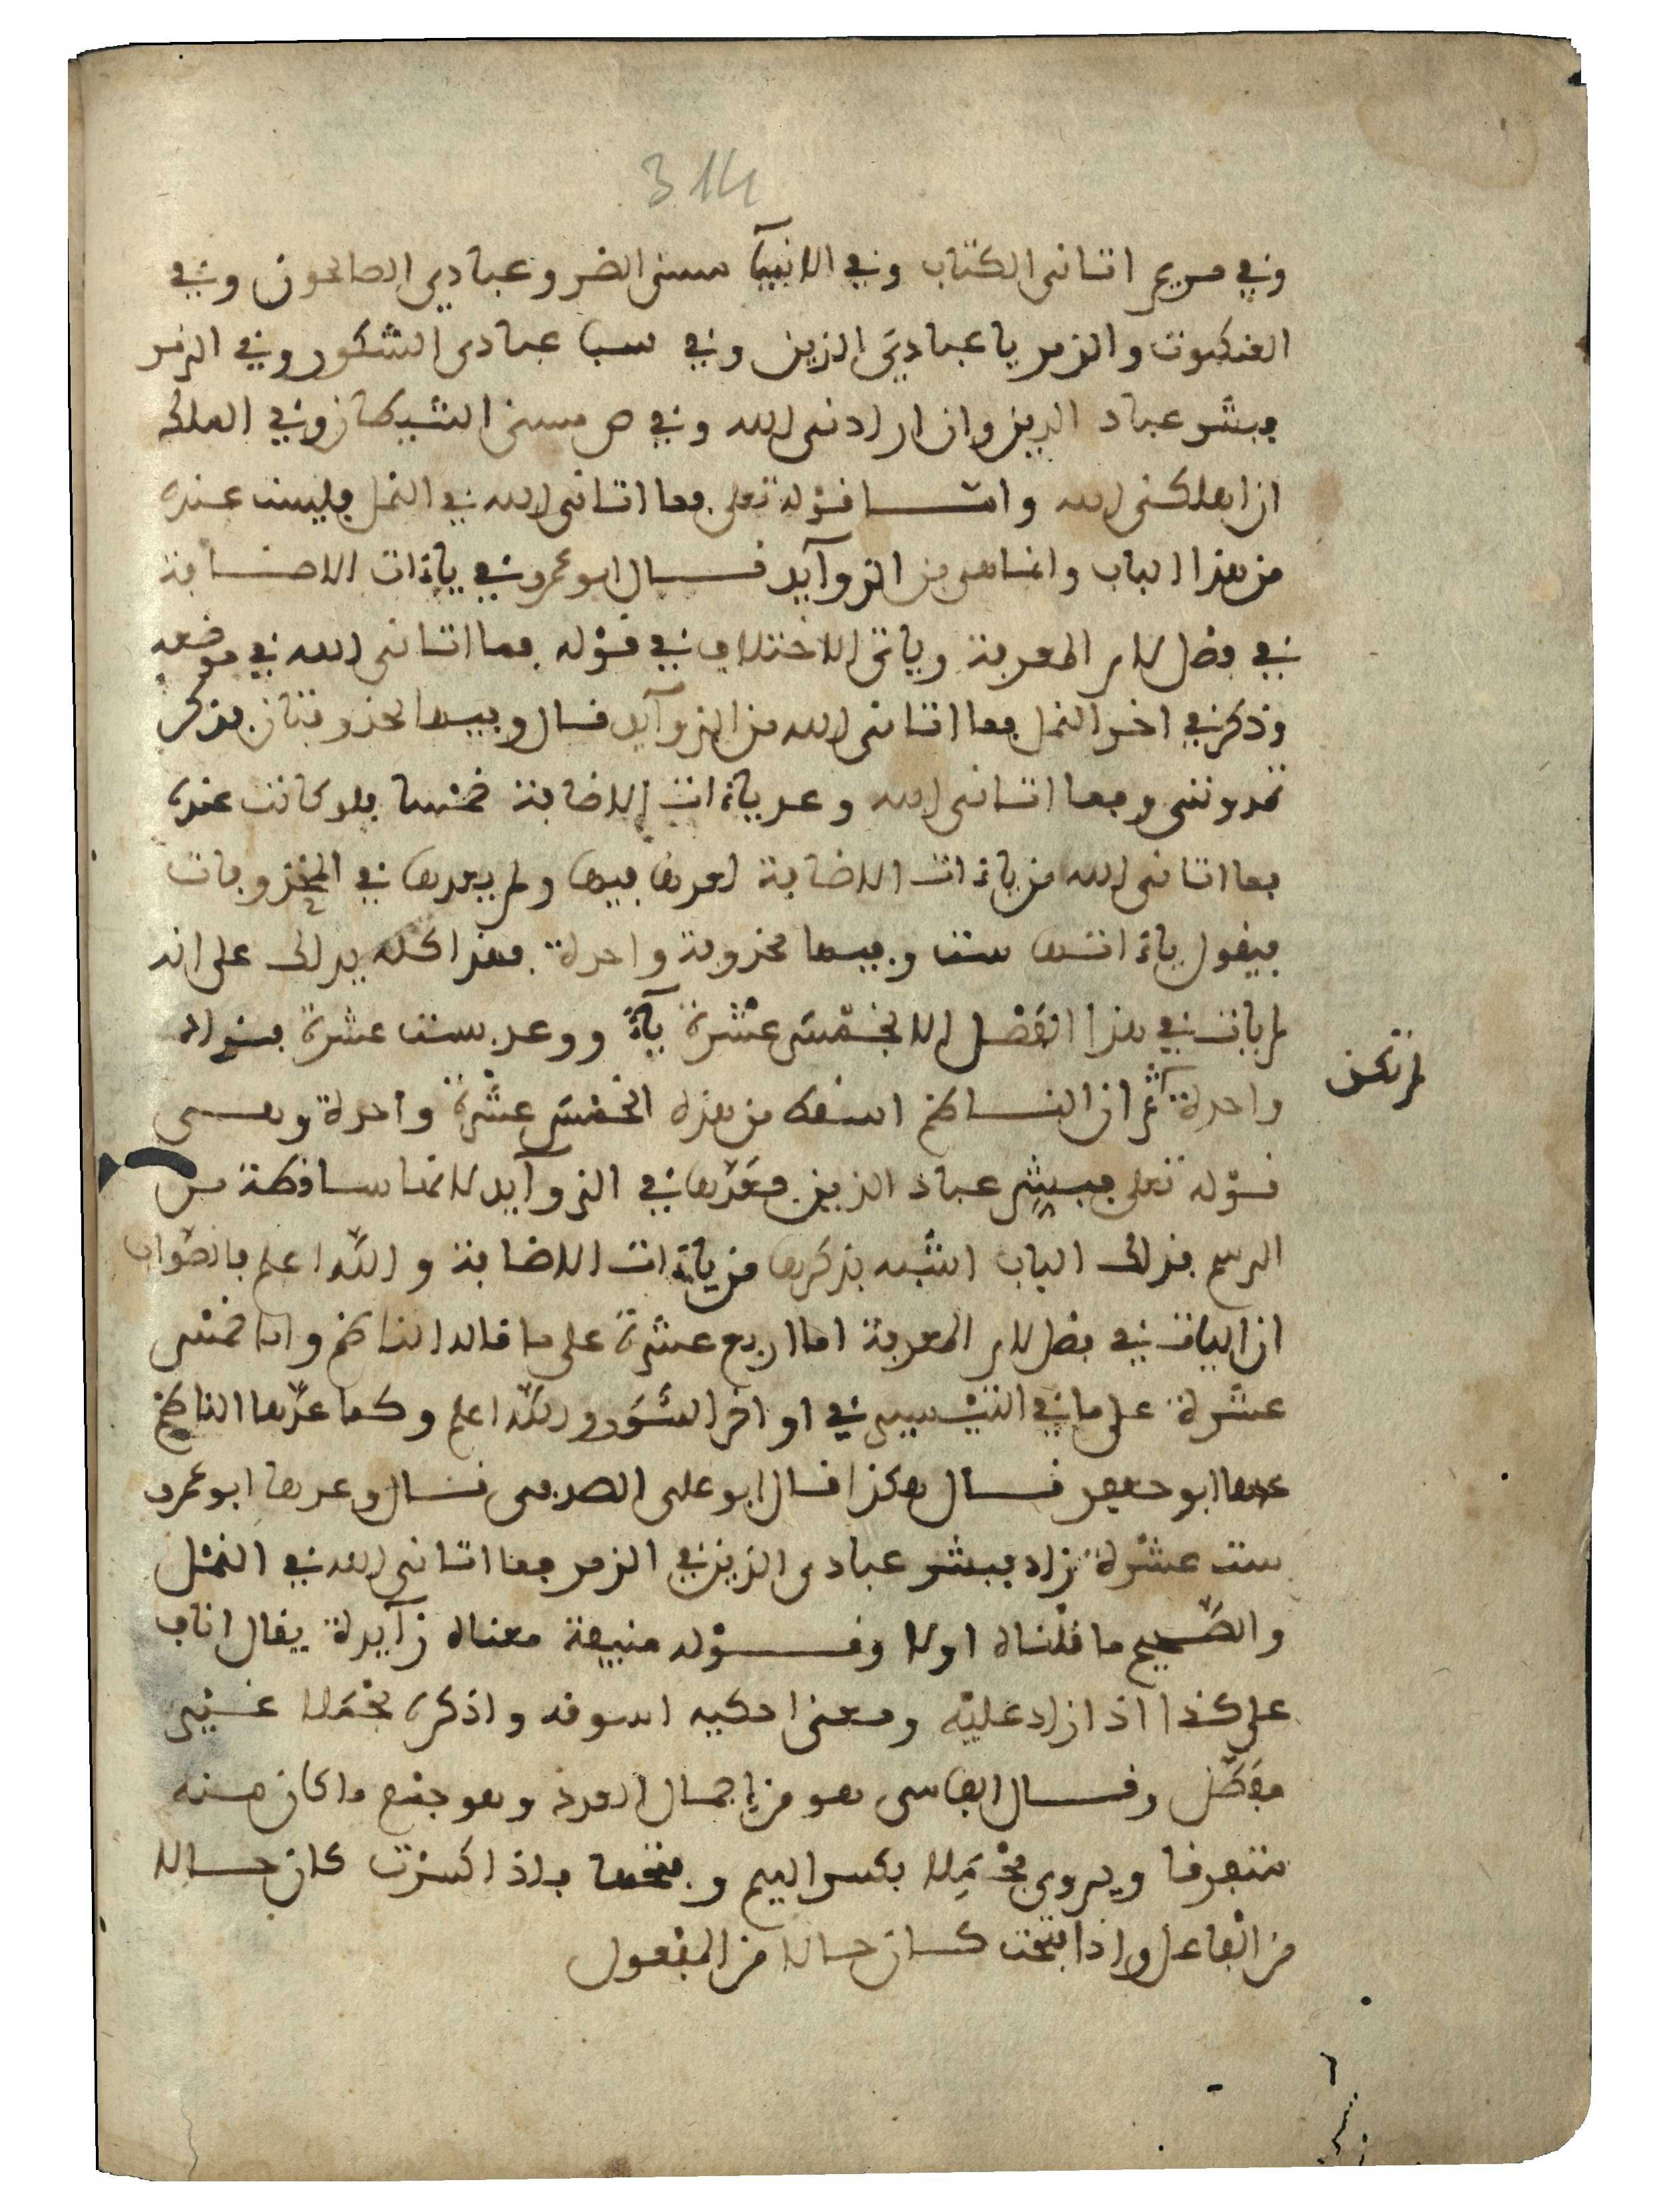 314
وفي مريم اتانى الكتاب وفي الانبيآ مسنى الضر وعبادي الصالحون وفي
العنكبوت والزمر يا عبادي الذين وفي سبا عبادى الشكور وفي الزمر
فبشر عباد الذين وان ارادنى الله وفي ص مسنى الشيطان وفي الملك
ان اهلكنى الله وامـــا قوله تعلى فما اتانى الله في النمل فليست عنده
من هذا الباب وانما هى من الزوآيد قــال ابو عمرو في ياءات الاضــافة
في فصل لام المعرفة وياتى الاختلاف في قوله فما اتانى الله في موضعه
وذكر في اخر النمل فما اتانى الله من الزوآيد قال وفيها محذوفتان فذكر
تمدوننى وفما اتانى الله وعد ياءات الاضافة خمسا فلو كانت عنده
فما اتانى الله من ياءات الاضافة لعدها فيها ولم يعدها في المحذوفات
فيقول ياءاتها ست وفيها محذوفة واحدة فهذا كله يدلك على انه
لم يات في هذا الفصل الا بخمس عشرة يآءً ووعد بست عشرة فزاد
لم تكن
واحدة ثم ان الناظم اسقط من هذه الخمس عشرة واحدة وهــى
قوله تعلى فبشر عباد الذين فعدها في الزوآيد لانها ساقطة من
الرسم فذلك الباب اشبه بذكرها من ياءات الاضافة والله اعلم بالصواب
ان الياات في فصل لام المعرفة اما اربع عشرة على ما قاله الناظم واما خمس
عشرة على ما في التيسير في اواخر السور والله اعلم وكما عدها الناظم
عدها ابو جعفر قــال هكذا قال ابو على الصدفى قــال وعدها ابو عمرو
ست عشرة زاد فبشر عبادى الذين في الزمر فما اتانى الله في النمل
والصحيح ما قلناه اولا وقــوله منيفة معناه زآيدة يقال اناف
على كذا اذا زاد عليه ومعنى احكيه اسوقه واذكره مجملا غــير
مفصل وقــال الفاسى هو من اجمال العدد وهو جمع ما كان منه
متفرقا ويروى مجملا بكسر الميم وفتحها فاذا كسرت كان حــالا
من الفاعل واذا فتحت كــان حــالا من المفعول